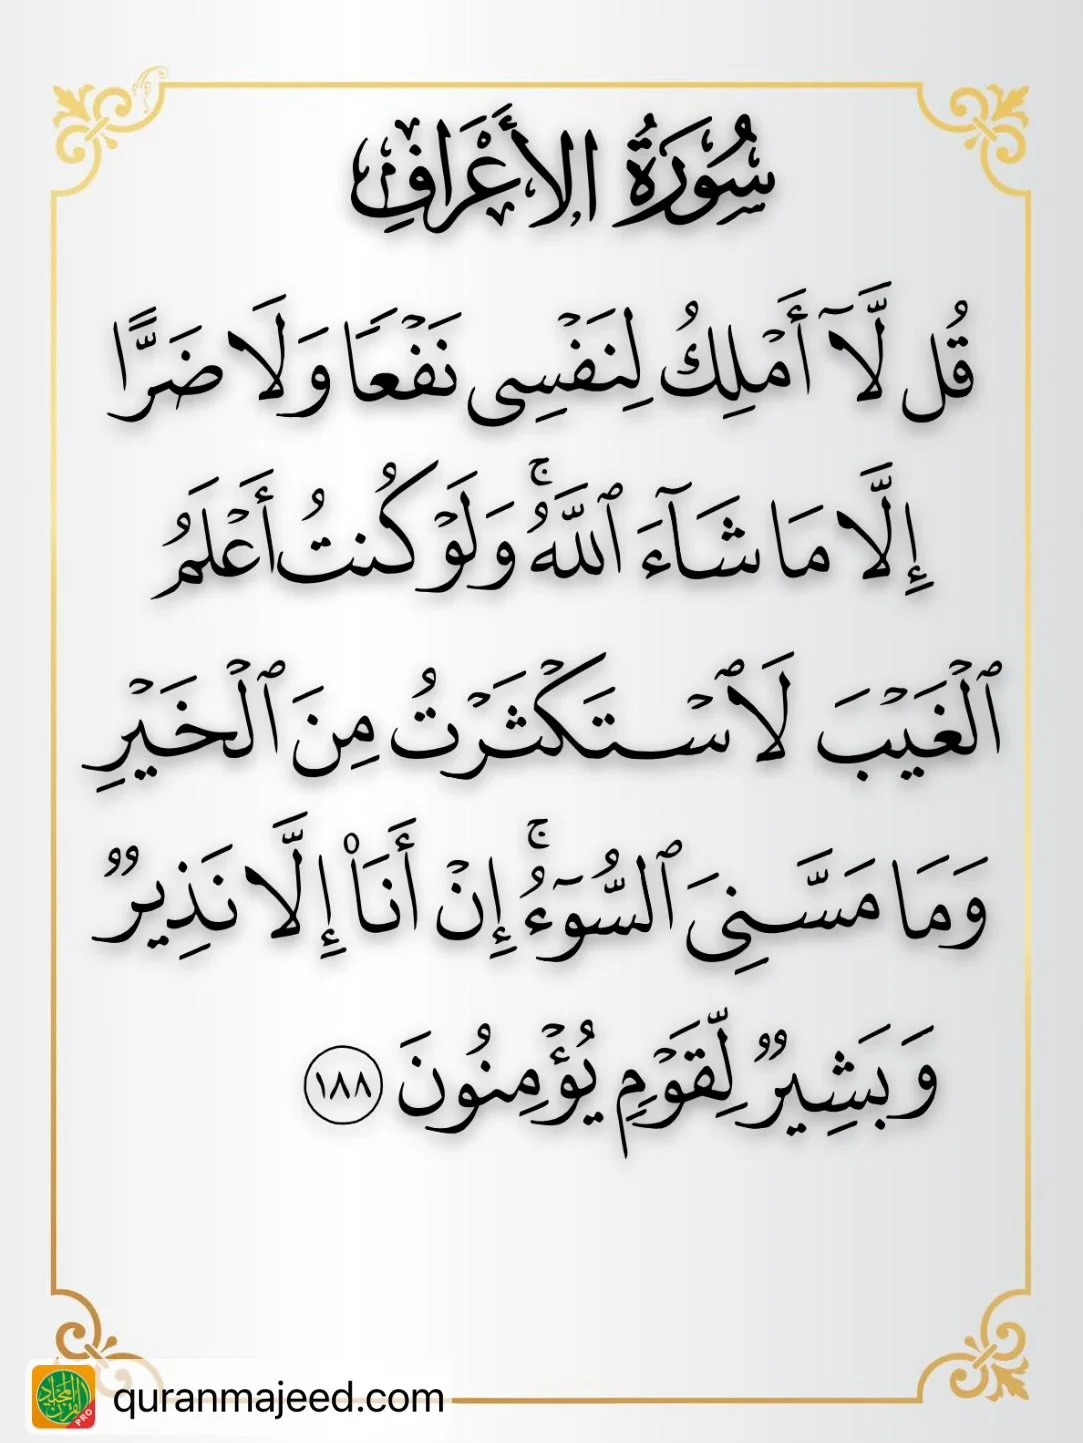 سُورَةُ الأَعْرَافِ
قُل لَّآ أَمْلِكُ لِنَفْسِى نَفْعًا وَلَا ضَرًّا
إِلَّا مَا شَآءَ ٱللَّهُ ۚ وَلَوْ كُنتُ أَعْلَمُ
ٱلْغَيْبَ لَٱسْتَكْثَرْتُ مِنَ ٱلْخَيْرِ
وَمَا مَسَّنِىَ ٱلسُّوٓءُ ۚ إِنْ أَنَا۠ إِلَّا نَذِيرٌ
وَبَشِيرٌ لِّقَوْمٍ يُؤْمِنُونَ ١٨٨
quranmajeed.com
القرآن المجيد
PRO